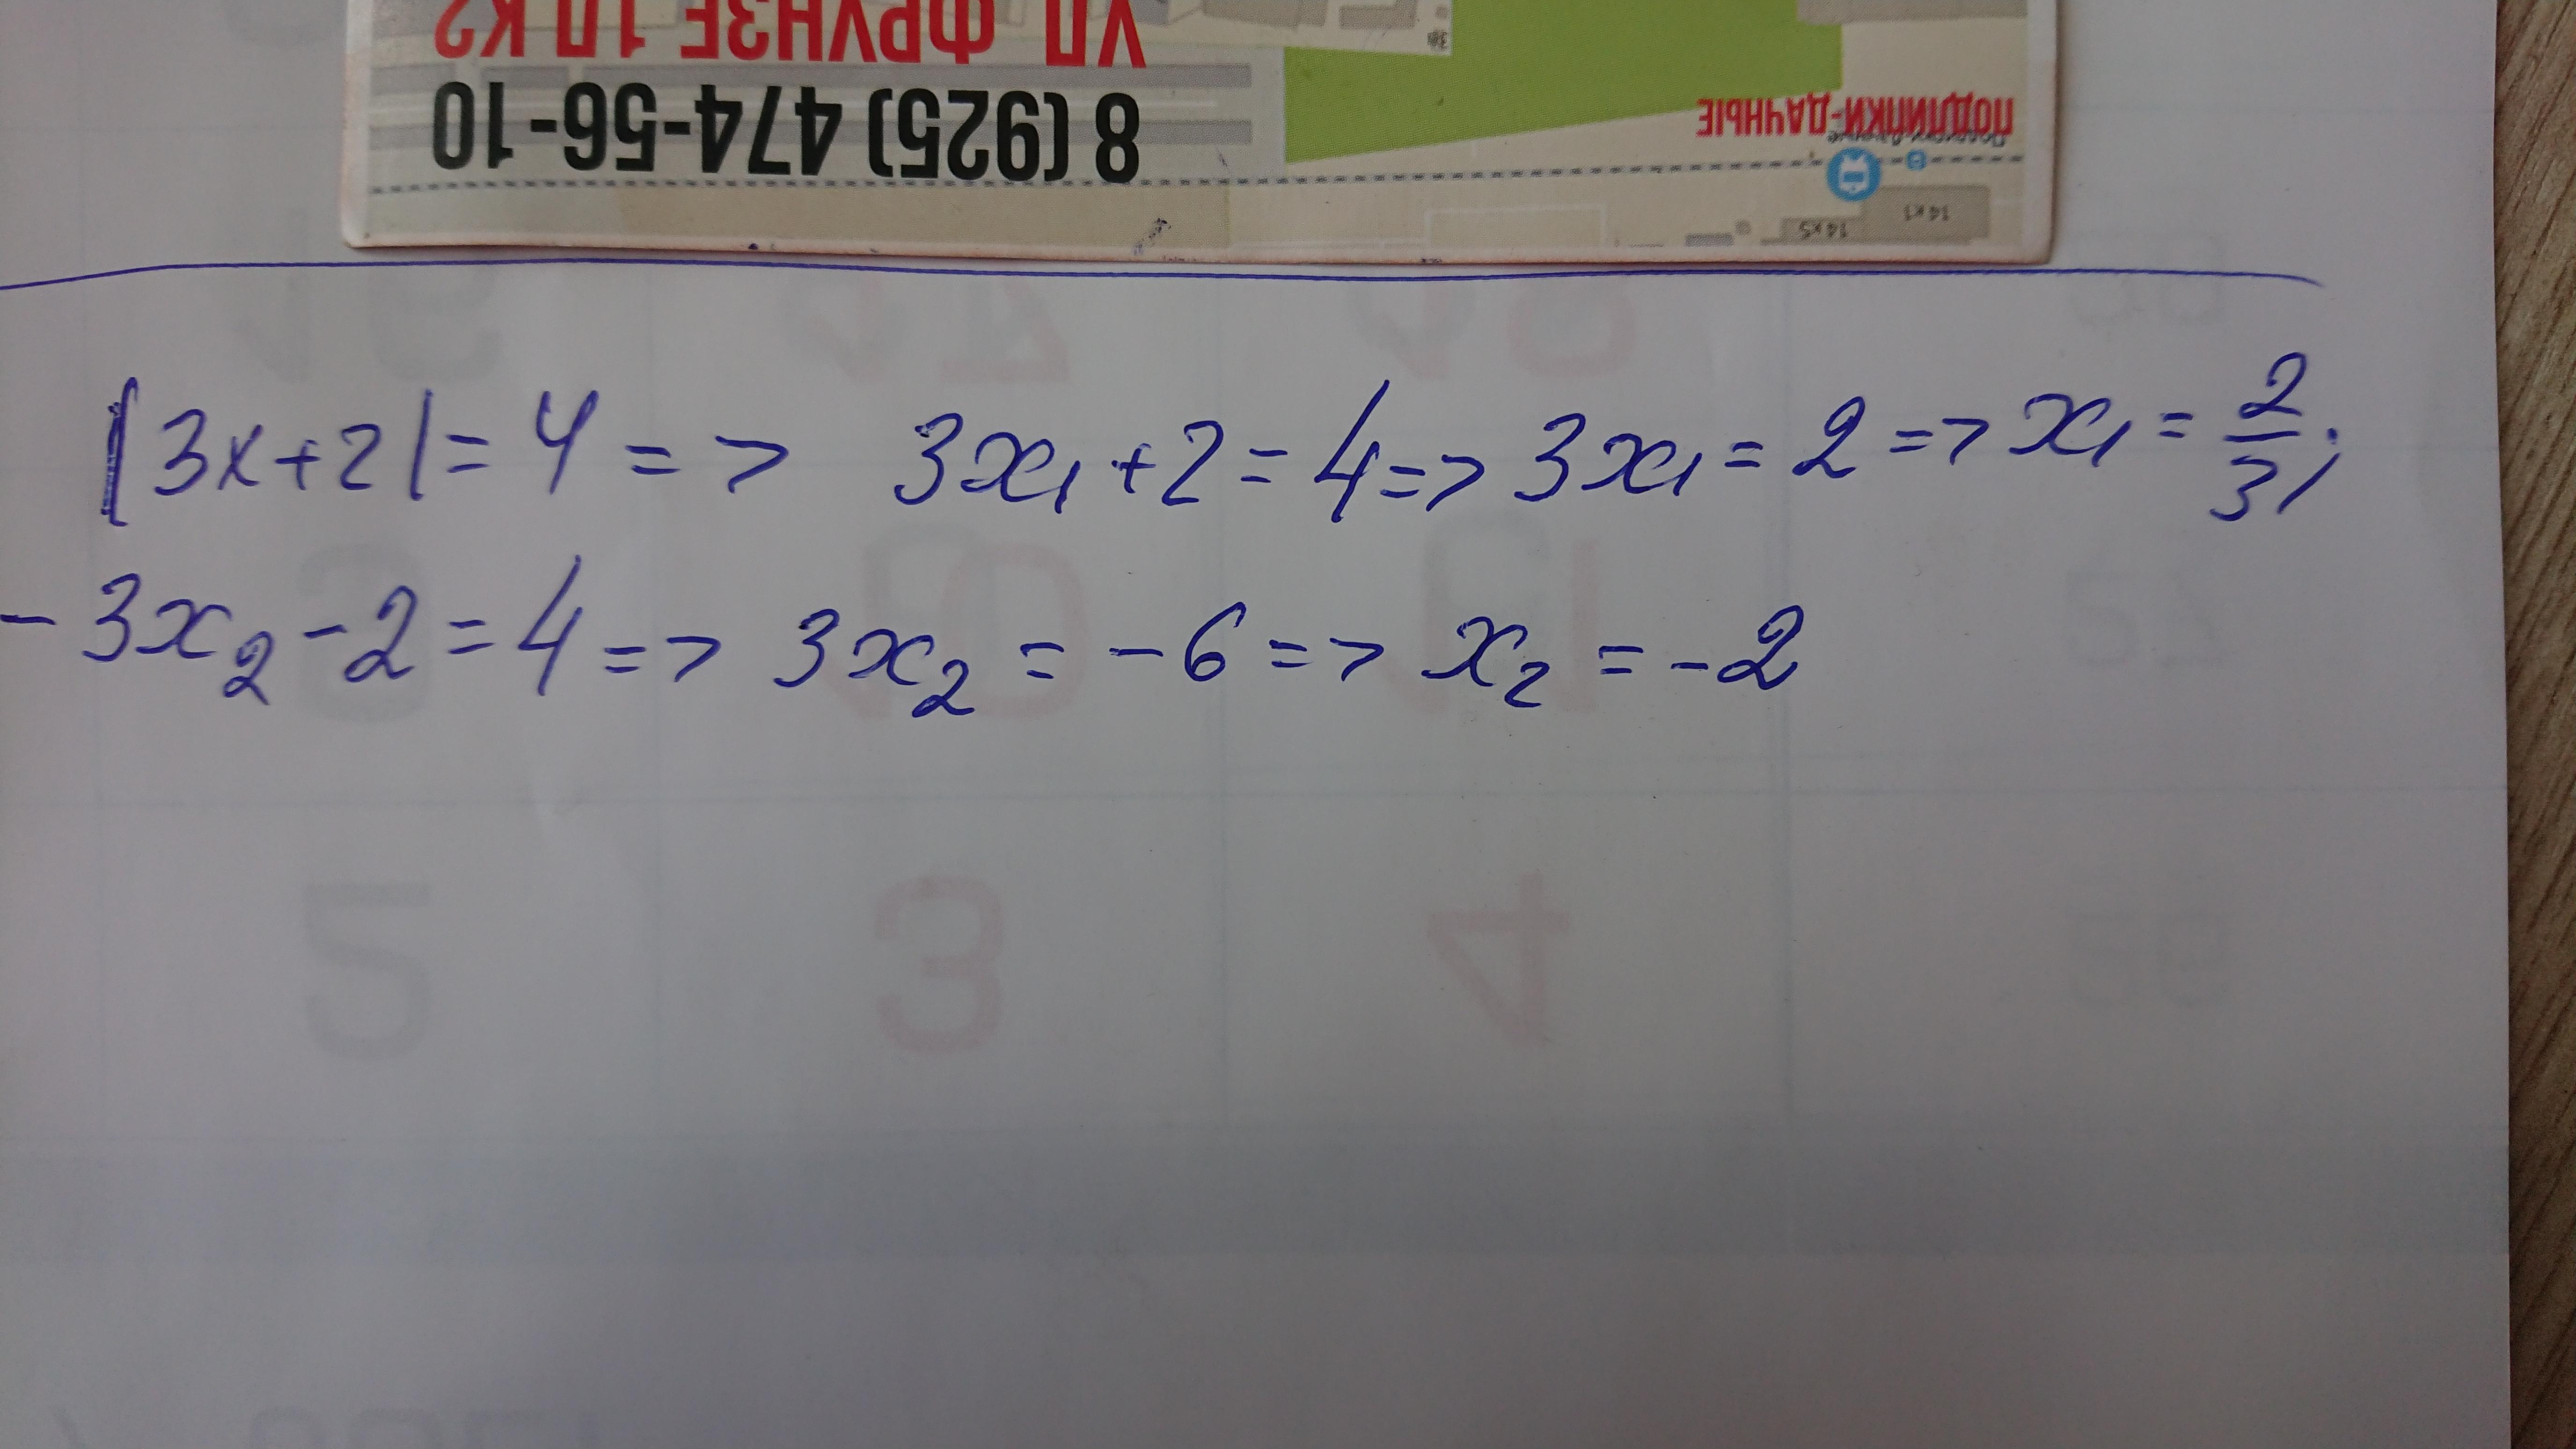 УЛ ФРУНЗЕ 1Д К2
8 (925) 474-56-10
ПОДЛИПКИ-ДАЧНЫЕ
14к1
14к5
|3x+2|=4 => 3x₁+2=4=> 3x₁=2=> x₁=2/3;
-3x₂-2=4=> 3x₂=-6=> x₂=-2
10 11
2 3 4